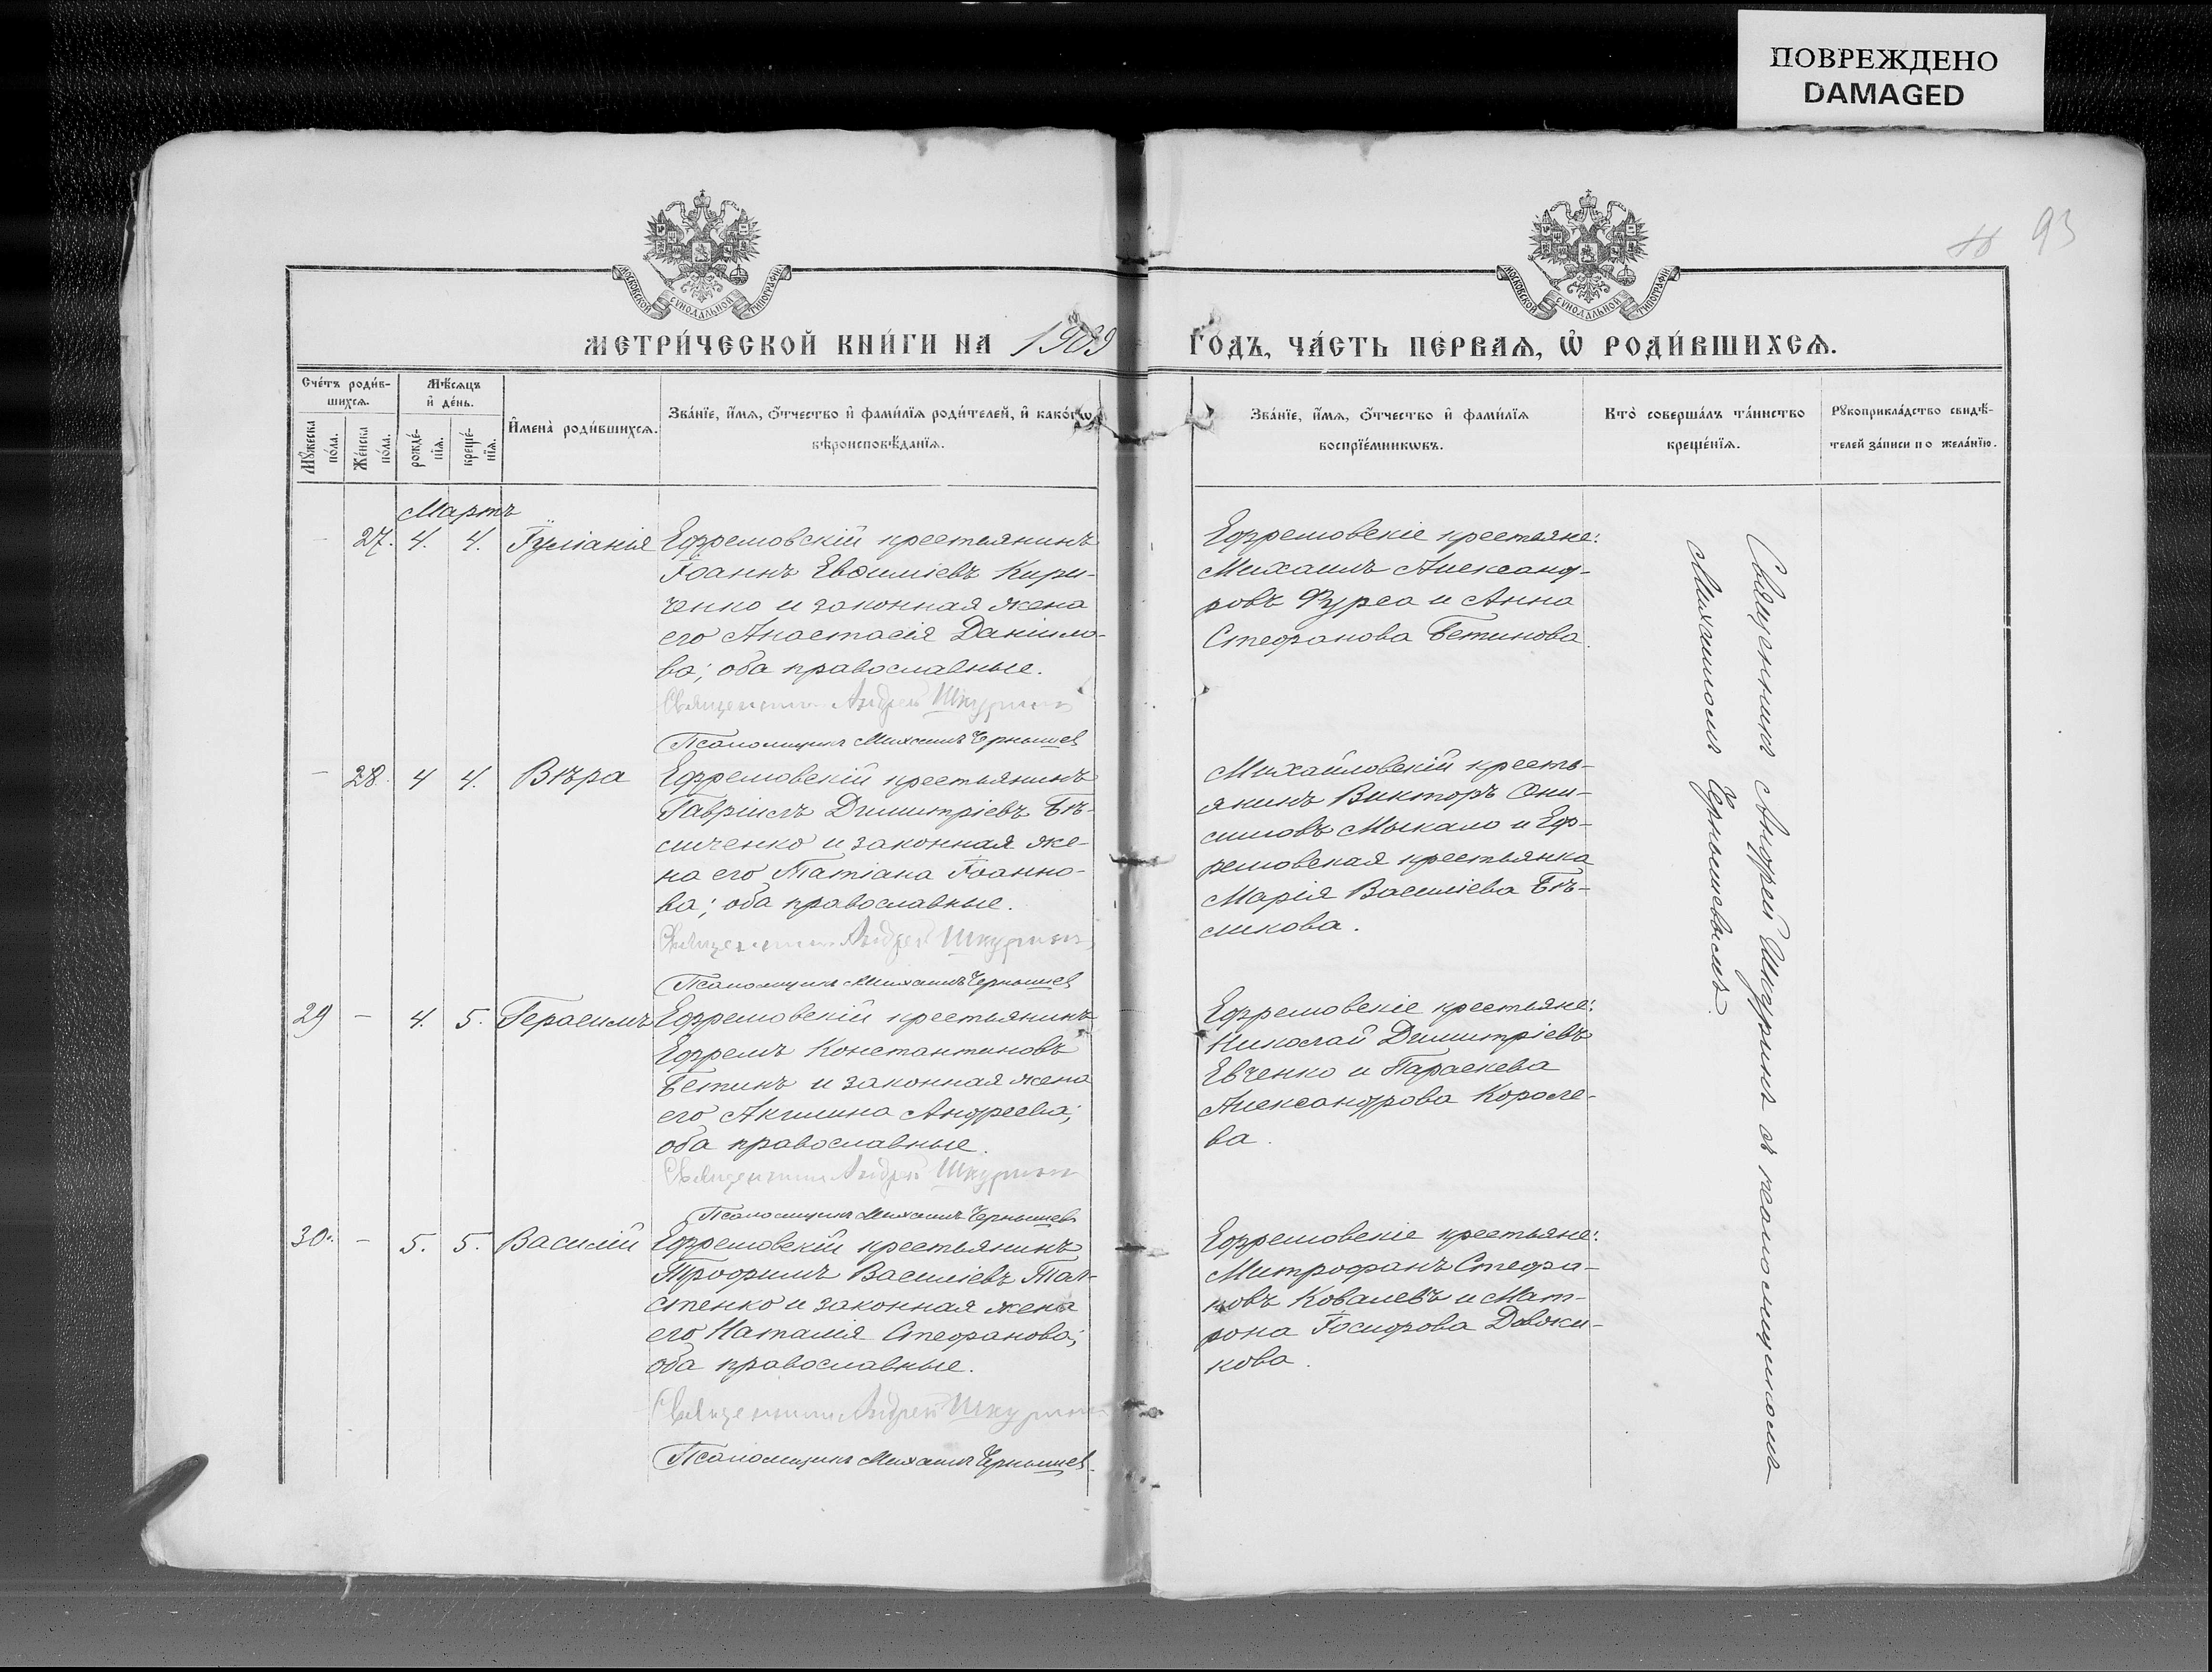 ПОВРЕЖДЕНО
DAMAGED
93
МОСКОВСКОЙ СѴНОДАЛЬНОЙ ТИПОГРАФІИ
МОСКОВСКОЙ СѴНОДАЛЬНОЙ ТИПОГРАФІИ
МЕТРИ́ЧЕСКОЙ КНИ́ГИ НА 1909
ГО́ДЪ, ЧА́СТЬ ПЕ́РВАѦ, Ѡ҆ РОДИ́ВШИХСѦ.
Сче́тъ роди́в-
шихсѧ.
Мꙋ́жеска по́ла.
Же́нска по́ла.
Мѣ́сѧцъ
и҆ де́нь.
рожде́-
нїѧ.
креще́-
нїѧ.
И҆мена̀ роди́вшихсѧ.
Зва́нїе, и҆́мѧ, ѻ҆́тчество и҆ фами́лїѧ роди́телей, и҆ како́гѡ
вѣроисповѣ́данїѧ.
Зва́нїе, и҆́мѧ, ѻ҆́тчество и҆ фами́лїѧ
воспрїе́мникѡвъ.
Кто̀ соверша́лъ та́инство
креще́нїѧ.
Рꙋкоприкла́дство свидѣ́-
телей за́писи по жела́нїю.
Мартъ
- 27. 4. 4. Іуліанія
Ефремовскій крестьянинъ
Іоаннъ Евѳиміевъ Кири-
ченко и законная жена
его Анастасія Даніило-
ва; оба православные.
Священникъ Андрей Шкуринъ
Псаломщикъ Михаилъ Чернышев
Ефремовскіе крестьяне:
Михаилъ Александ-
ровъ Фурса и Анна
Стефанова Бетинова.
- 28. 4 4. Вѣра
Ефремовскій крестьянинъ
Гавріилъ Димитріевъ Бѣ-
личенко и законная же-
на его Татіана Іоанно-
ва; оба православные.
Священникъ Андрей Шкуринъ
Псаломщикъ Михаилъ Чернышев
Михайловскій кресть-
янинъ Викторъ Они-
симовъ Мыкало и Еф-
ремовская крестьянка
Марія Василіева Бѣ-
ликова.
29 - 4. 5. Герасимъ
Ефремовскій крестьянинъ
Ефремъ Константиновъ
Бетинъ и законная жена
его Акилина Андреева;
оба православные.
Священникъ Андрей Шкуринъ
Псаломщикъ Михаилъ Чернышев
Ефремовскіе крестьяне:
Николай Димитріевъ
Евченко и Параскева
Александрова Короле-
ва.
30. - 5. 5. Василій
Ефремовскій крестьянинъ
Трофимъ Василіевъ Тол-
стенко и законная жена
его Наталія Стефанова;
оба православные.
Священникъ Андрей Шкуринъ
Псаломщикъ Михаилъ Чернышев
Ефремовскіе крестьяне:
Митрофанъ Стефа-
новъ Ковалевъ и Мат-
рона Іосифова
кова.
Священникъ Андрей Шкуринъ съ псаломщикомъ
Михаиломъ Чернышевымъ.